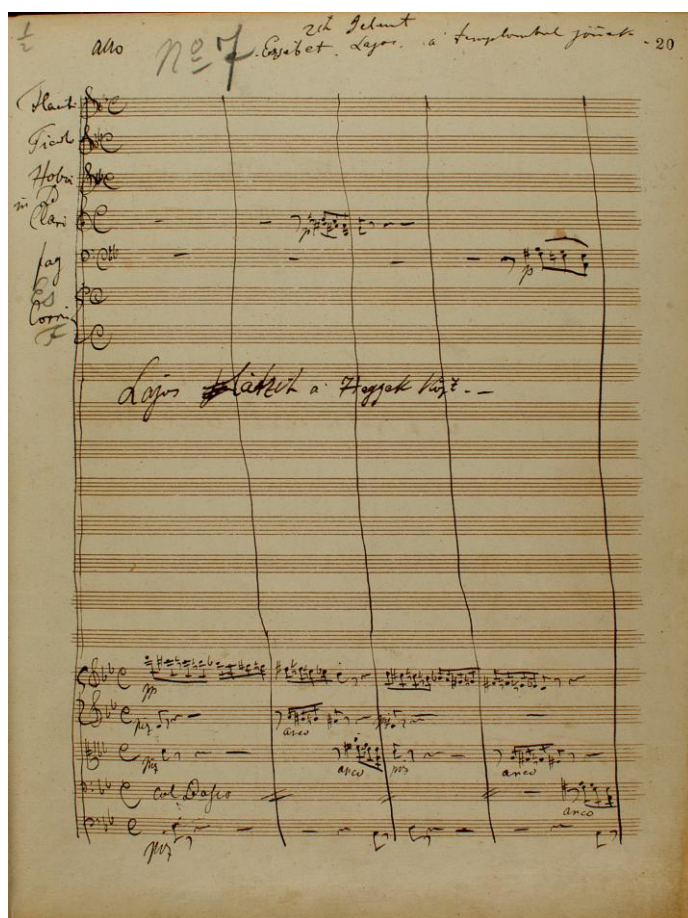 1/2
allo Nº 7 2ik Jelenet - 20
Erzsébet. Lajos. a templombul jönnek
Flauti
Picol
Hoboi
in B
Clari
p
fag
p
Es
Corni
F
Lajos a Hegyek közt. -
pp
piz arco piz
piz arco piz arco
col Basso arco
piz